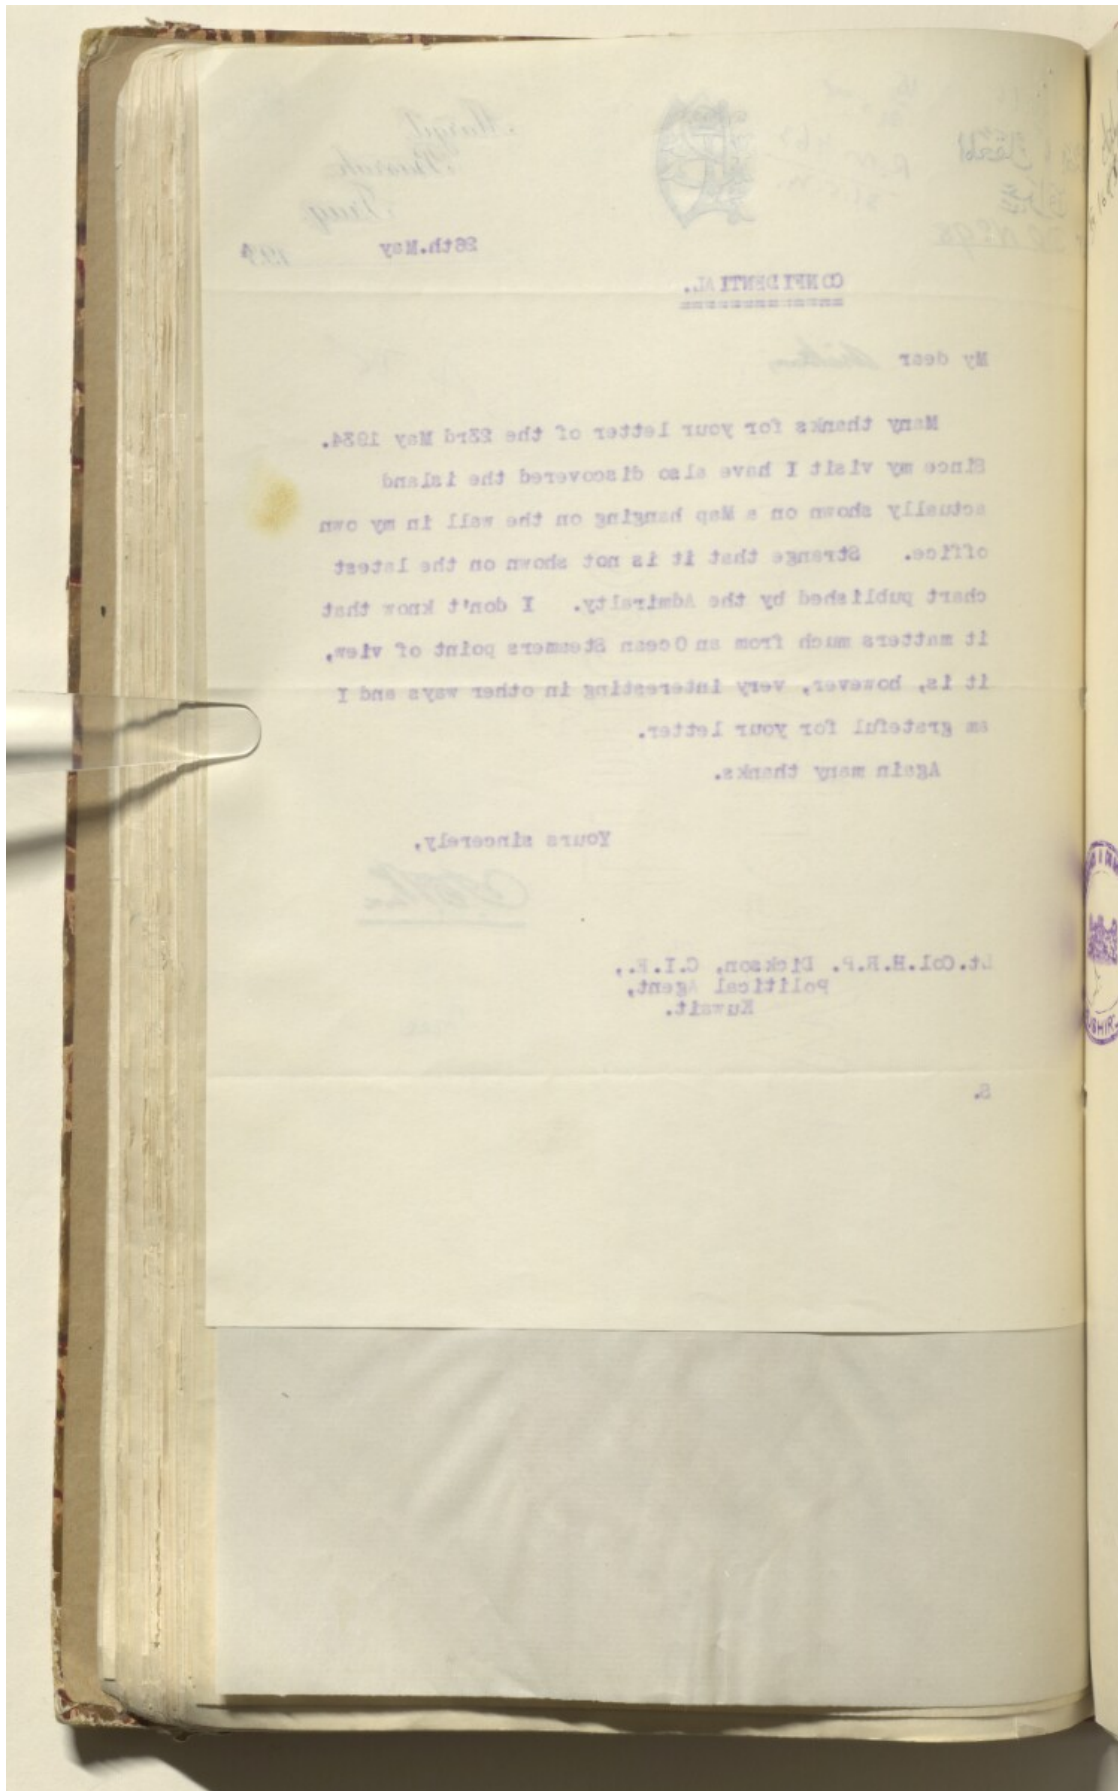 Margil
Basrah
Iraq
26th.May 1934
CONFIDENTIAL.
My dear Dickson,
Many thanks for your letter of the 23rd May 1934.
Since my visit I have also discovered the island
actually shown on a Map hanging on the wall in my own
office. Strange that it is not shown on the latest
chart published by the Admiralty. I don't know that
it matters much from an Ocean Steamers point of view,
it is, however, very interesting in other ways and I
am grateful for your letter.
Again many thanks.
Yours sincerely,
Lt.Col.H.R.P. Dickson, C.I.E.,
Political Agent,
Kuwait.
S.